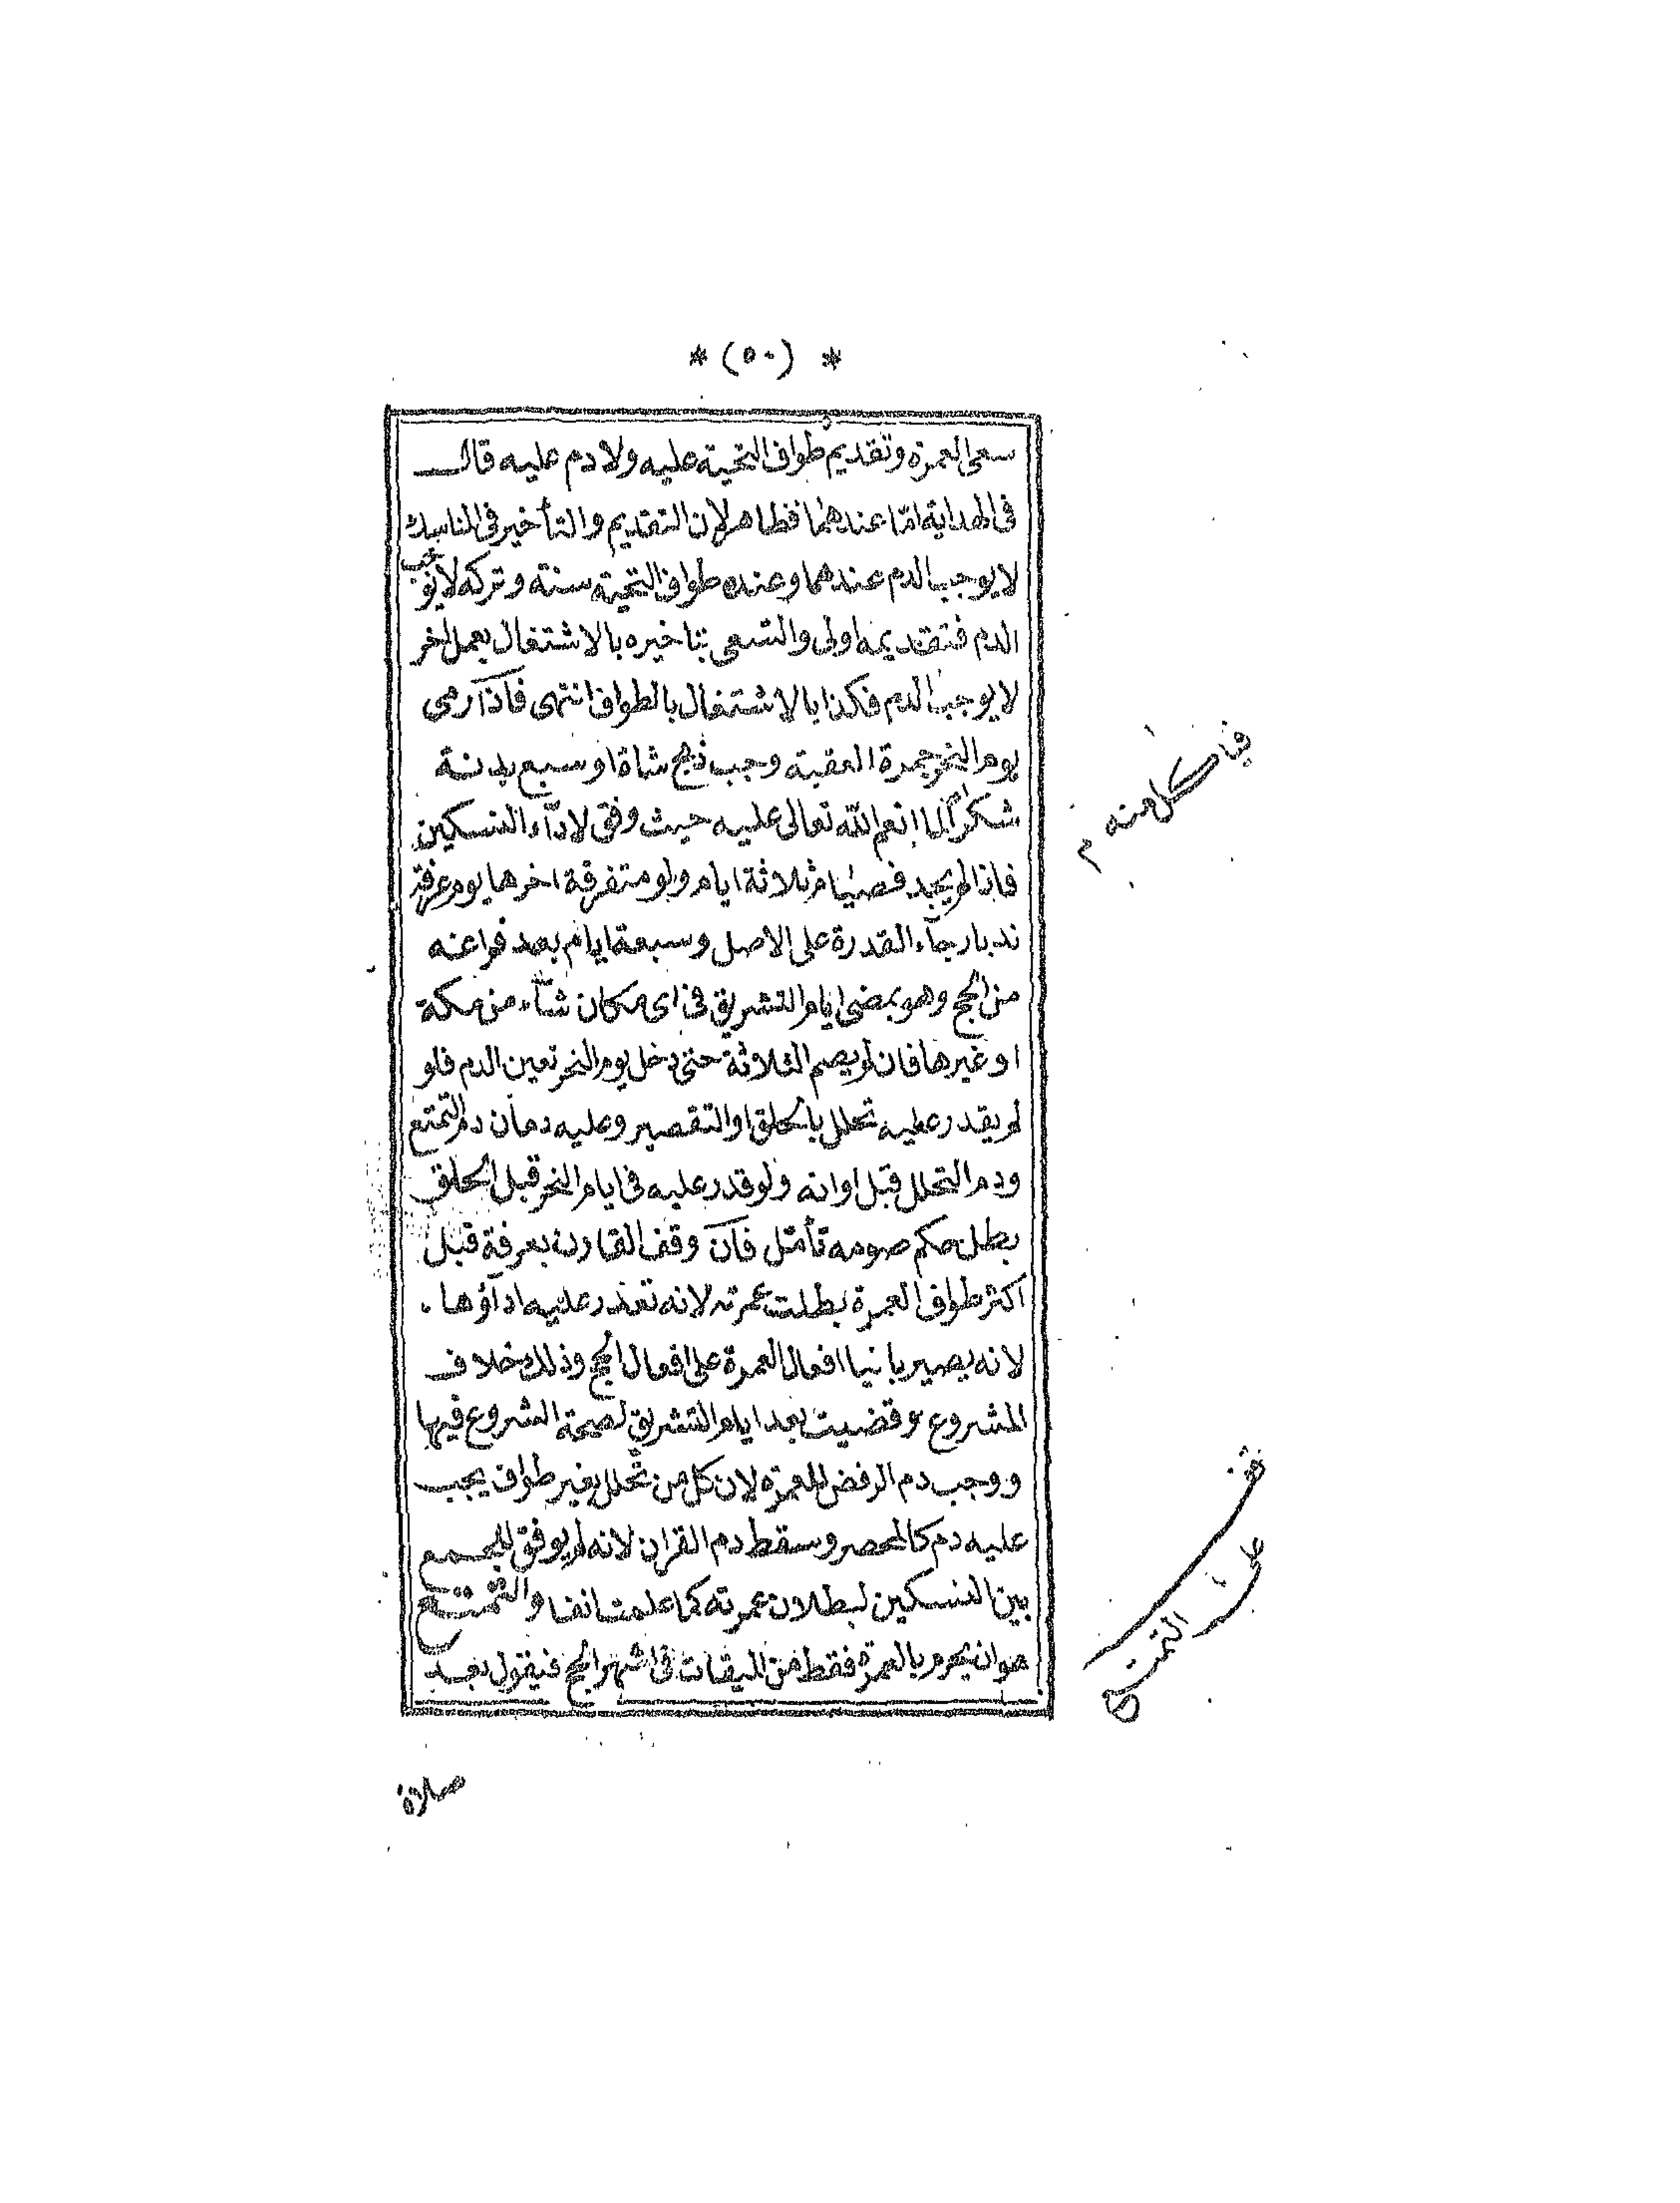 * (٥٠) *
سعى العمرة وتقديم طواف التحية عليه ولا دم عليه قال
فى الهداية امّا عندهما فظاهر لان التقديم والتأخير فى المناسك
لا يوجب الدم عندهما وعنده طواف التحية سنة وتركه لا يوجب
الدم فتقديمه اولى والسعى بتاخيره بالاشتغال بعمل اخر
لا يوجب الدم فكذا بالاشتغال بالطواف انتهى فاذا رمى
يوم النحر جمرة العقبة وجب ذبح شاة او سبع بدنة
شكرا لما انعم الله تعالى عليه حيث وفق لادآء النسكين
فاذا لم يجد فصيام ثلاثة ايام ولو متفرقة اخرها يوم عرفة
ندبا رجآء القدرة على الاصل وسبعة ايام بعد فراغه
من الحج وهو بمضى ايام التشريق فى اى مكان شآء من مكة
او غيرها فان لم يصم الثلاثة حتى دخل يوم النحر تعين الدم فلو
لم يقدر عليه تحلل بالحلق او التقصير وعليه دمان دم التمتع
ودم التحلل قبل اوانه ولو قدر عليه فى ايام النحر قبل الحلق
بطل حكم صومه تأمّل فان وقف القارن بعرفة قبل
اكثر طواف العمرة بطلت عمرته لانه تعذر عليه ادآؤها .
لانه يصير بانيا افعال العمرة على افعال الحج وذلك خلاف
المشروع وقضيت بعد ايام التشريق لصحة الشروع فيها
ووجب دم الرفض للعمرة لان كل من تحلل بغير طواف يجب
عليه دم كالمحصر وسقط دم القران لانه لم يوفق للجمع
بين النسكين لبطلان عمرته كما علمت انفا والتمتع
هو ان يحرم بالعمرة فقط من الميقات فى اشهر الحج فيقول بعد
صلاة
فياكل منه م
على
التمتع